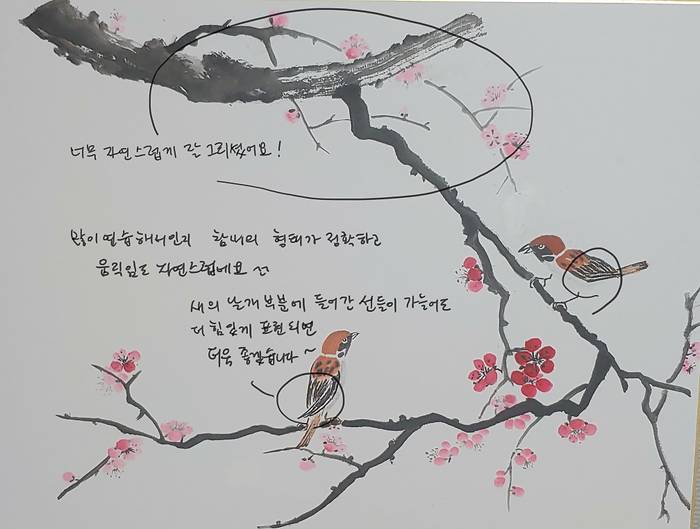 너무 자연스럽게 잘 그리셨어요!
많이 연습해서인지 참새의 형태가 정확하고
움직임도 자연스럽네요
새의 날개 부분에 들어간 선들이 가늘어도
더 힘있게 표현되면
더욱 좋겠습니다~